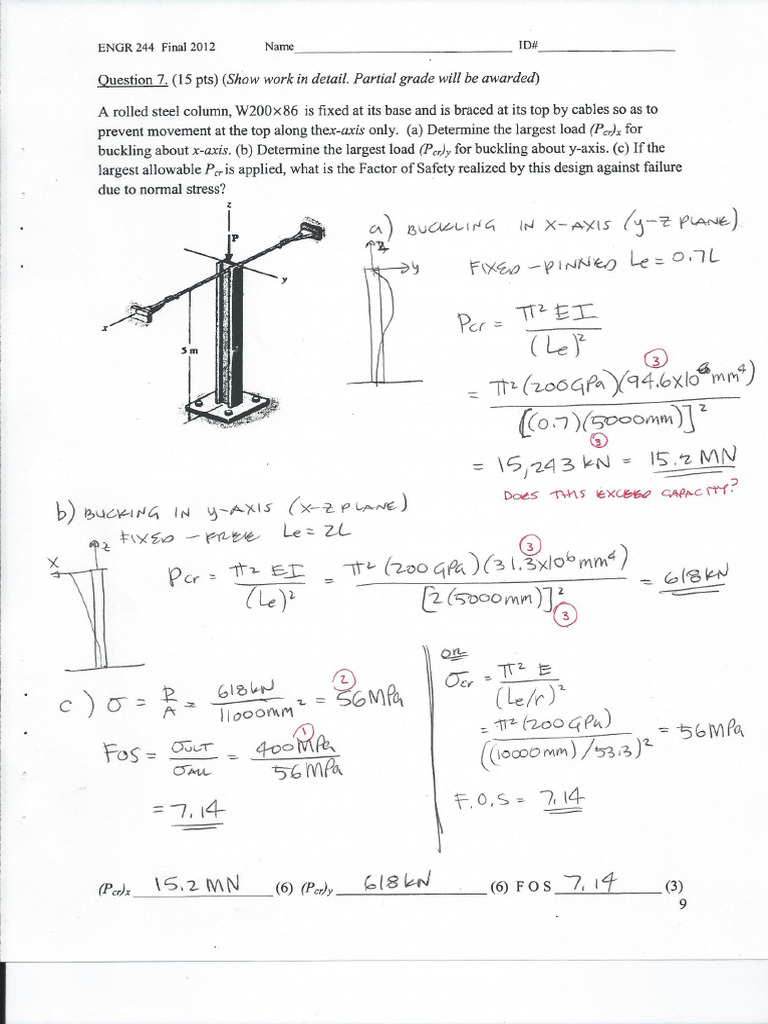 ENGR 244 Final 2012 Name ID#
Question 7. (15 pts) (Show work in detail. Partial grade will be awarded)
A rolled steel column, W200×86 is fixed at its base and is braced at its top by cables so as to
prevent movement at the top along thex-axis only. (a) Determine the largest load (Pcr)x for
buckling about x-axis. (b) Determine the largest load (Pcr)y for buckling about y-axis. (c) If the
largest allowable Pcr is applied, what is the Factor of Safety realized by this design against failure
due to normal stress?
z
P
y
x
5 m
a) BUCKLING IN X-AXIS (y-Z PLANE)
Z
y
FIXED-PINNED Le = 0.7L
Pcr = π² EI / (Le)²
③
= π² (200 GPa)(94.6x10⁶ mm⁴) / [(0.7)(5000mm)]²
③
= 15,243 kN = 15.2 MN
DOES THIS EXCEED CAPACITY?
b) BUCKING IN y-AXIS (X-Z PLANE)
FIXED-FREE Le = 2L
X
Z
③
Pcr = π² EI / (Le)² = π² (200 GPa)(31.3x10⁶ mm⁴) / [2(5000mm)]² = 618 kN
③
c) σ = P/A = 618 kN / 11000mm² = 56 MPa
②
FOS = σULT / σALL = 400 MPa / 56 MPa
①
= 7.14
OR
σcr = π² E / (Le/r)²
= π² (200 GPa) / ((10000 mm)/53.3)² = 56 MPa
F.O.S = 7.14
(Pcr)x 15.2 MN (6) (Pcr)y 618 kN (6) F O S 7.14 (3)
9